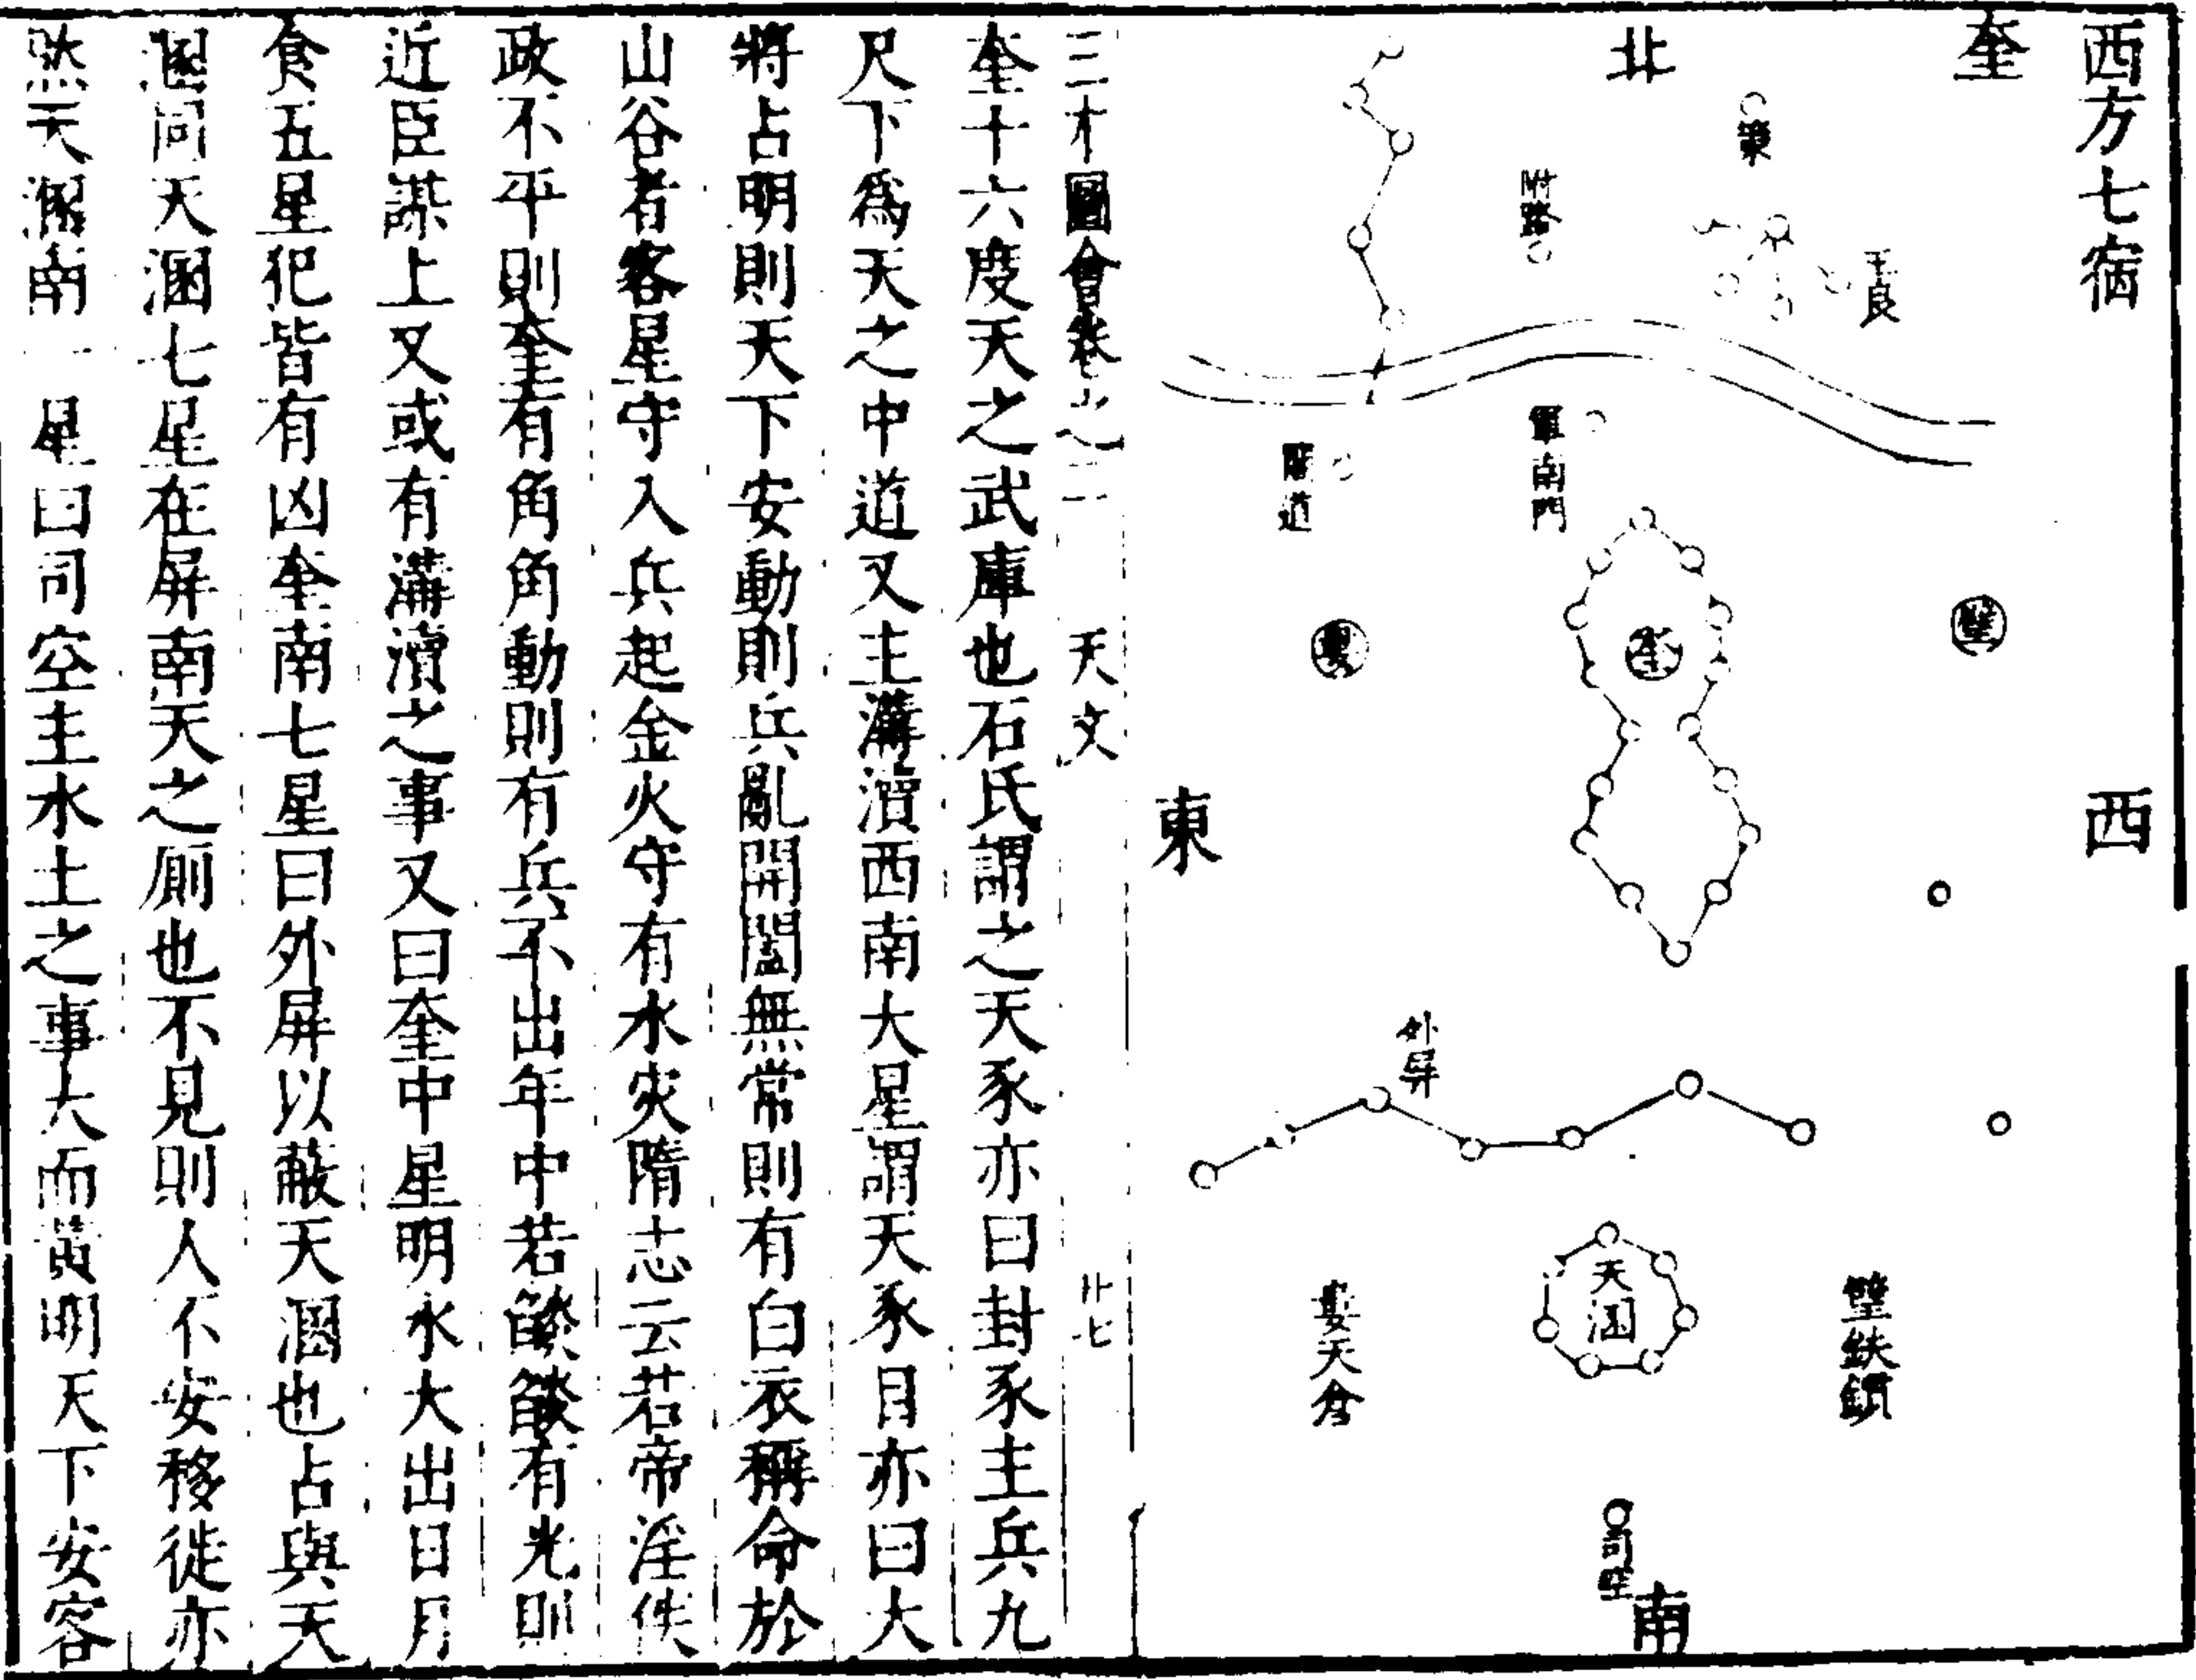 西方七宿 西
奎
北
策
王良
附路
軍南門
閣道
壁
奎
婁
東
外屏
天溷
壁鈇鑕
婁天倉
司空
南
三才圖會卷之二 天文 廿七
奎十六度天之武庫也石氏謂之天豕亦曰封豕主兵九
尺下爲天之中道又主溝瀆西南大星謂天豕目亦曰大
將占明則天下安動則兵亂開闔無常則有白衣稱命於
山谷者客星守入兵起金火守有水灾隋志云若帝淫佚
政不平則奎有角角動則有兵不出年中若燄燄有光則
近臣謀上又或有溝瀆之事又曰奎中星明水大出日月
食五星犯皆有凶奎南七星曰外屏以蔽天溷也占與天
溷同天溷七星在屏南天之厠也不見則人不安移徙亦
然天溷南一星曰司空主水土之事大而黃明天下安客